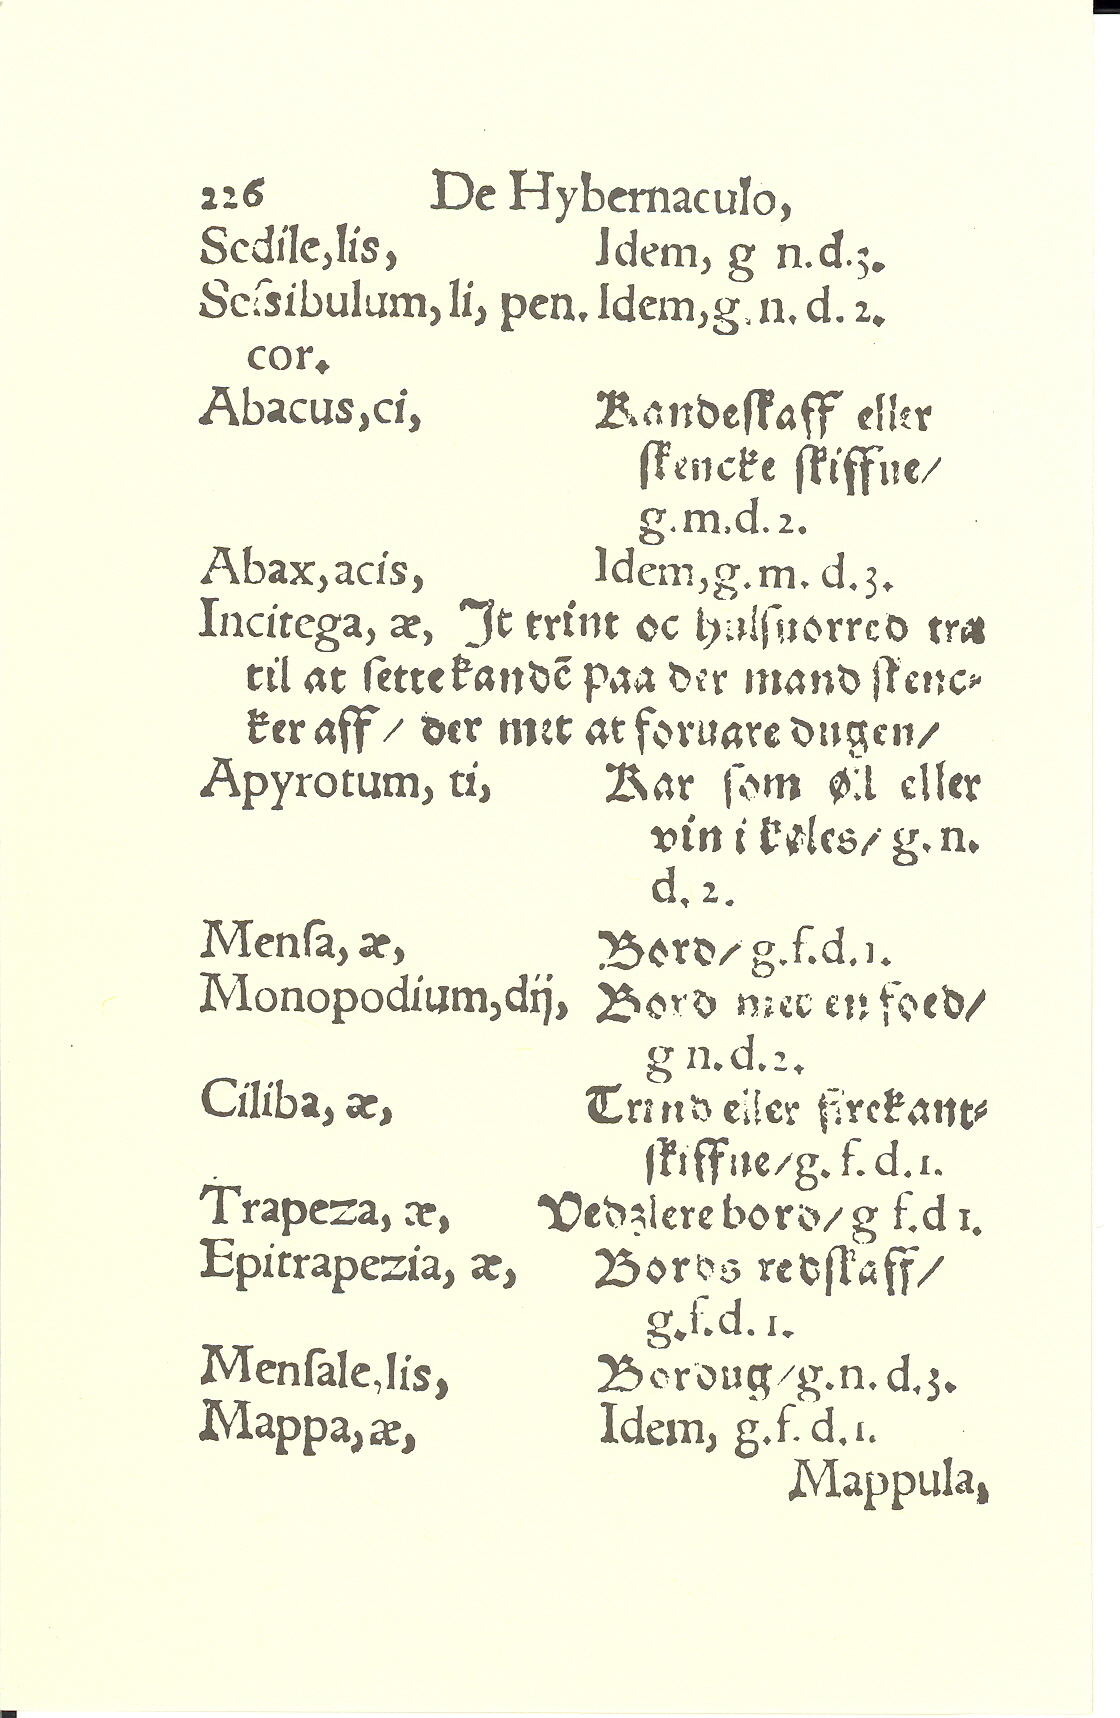 226 De Hybernaculo,
Sedile, lis, Idem, g n. d. 3.
Seſsibulum, li, pen. Idem, g. n. d. 2.
cor.
Abacus, ci, Kandeſkaff eller
ſkencke ſkiffue/
g. m. d. 2.
Abax, acis, Idem, g. m. d. 3.
Incitega, æ, It trint oc hulſuorred træ
til at ſette kandē paa der mand ſkenc-
ker aff / der met at foruare dugen/
Apyrotum, ti, Kar ſom øl eller
vin i køles/ g. n.
d. 2.
Menſa, æ, Bord/ g. f. d. 1.
Monopodium, dij, Bord met en foed/
g n. d. 2.
Ciliba, æ, Trind eller firekant-
ſkiffue/ g. f. d. 1.
Trapeza, æ, Vedzlere bord/ g f. d 1.
Epitrapezia, æ, Bords redſkaff/
g. f. d. 1.
Menſale, lis, Bordug/ g. n. d. 3.
Mappa, æ, Idem, g. f. d. 1.
Mappula,